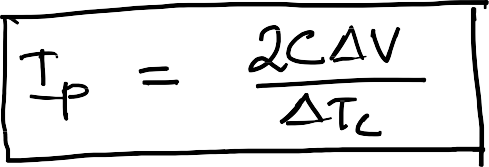 I_p = \frac{2CΔV}{ΔT_c}